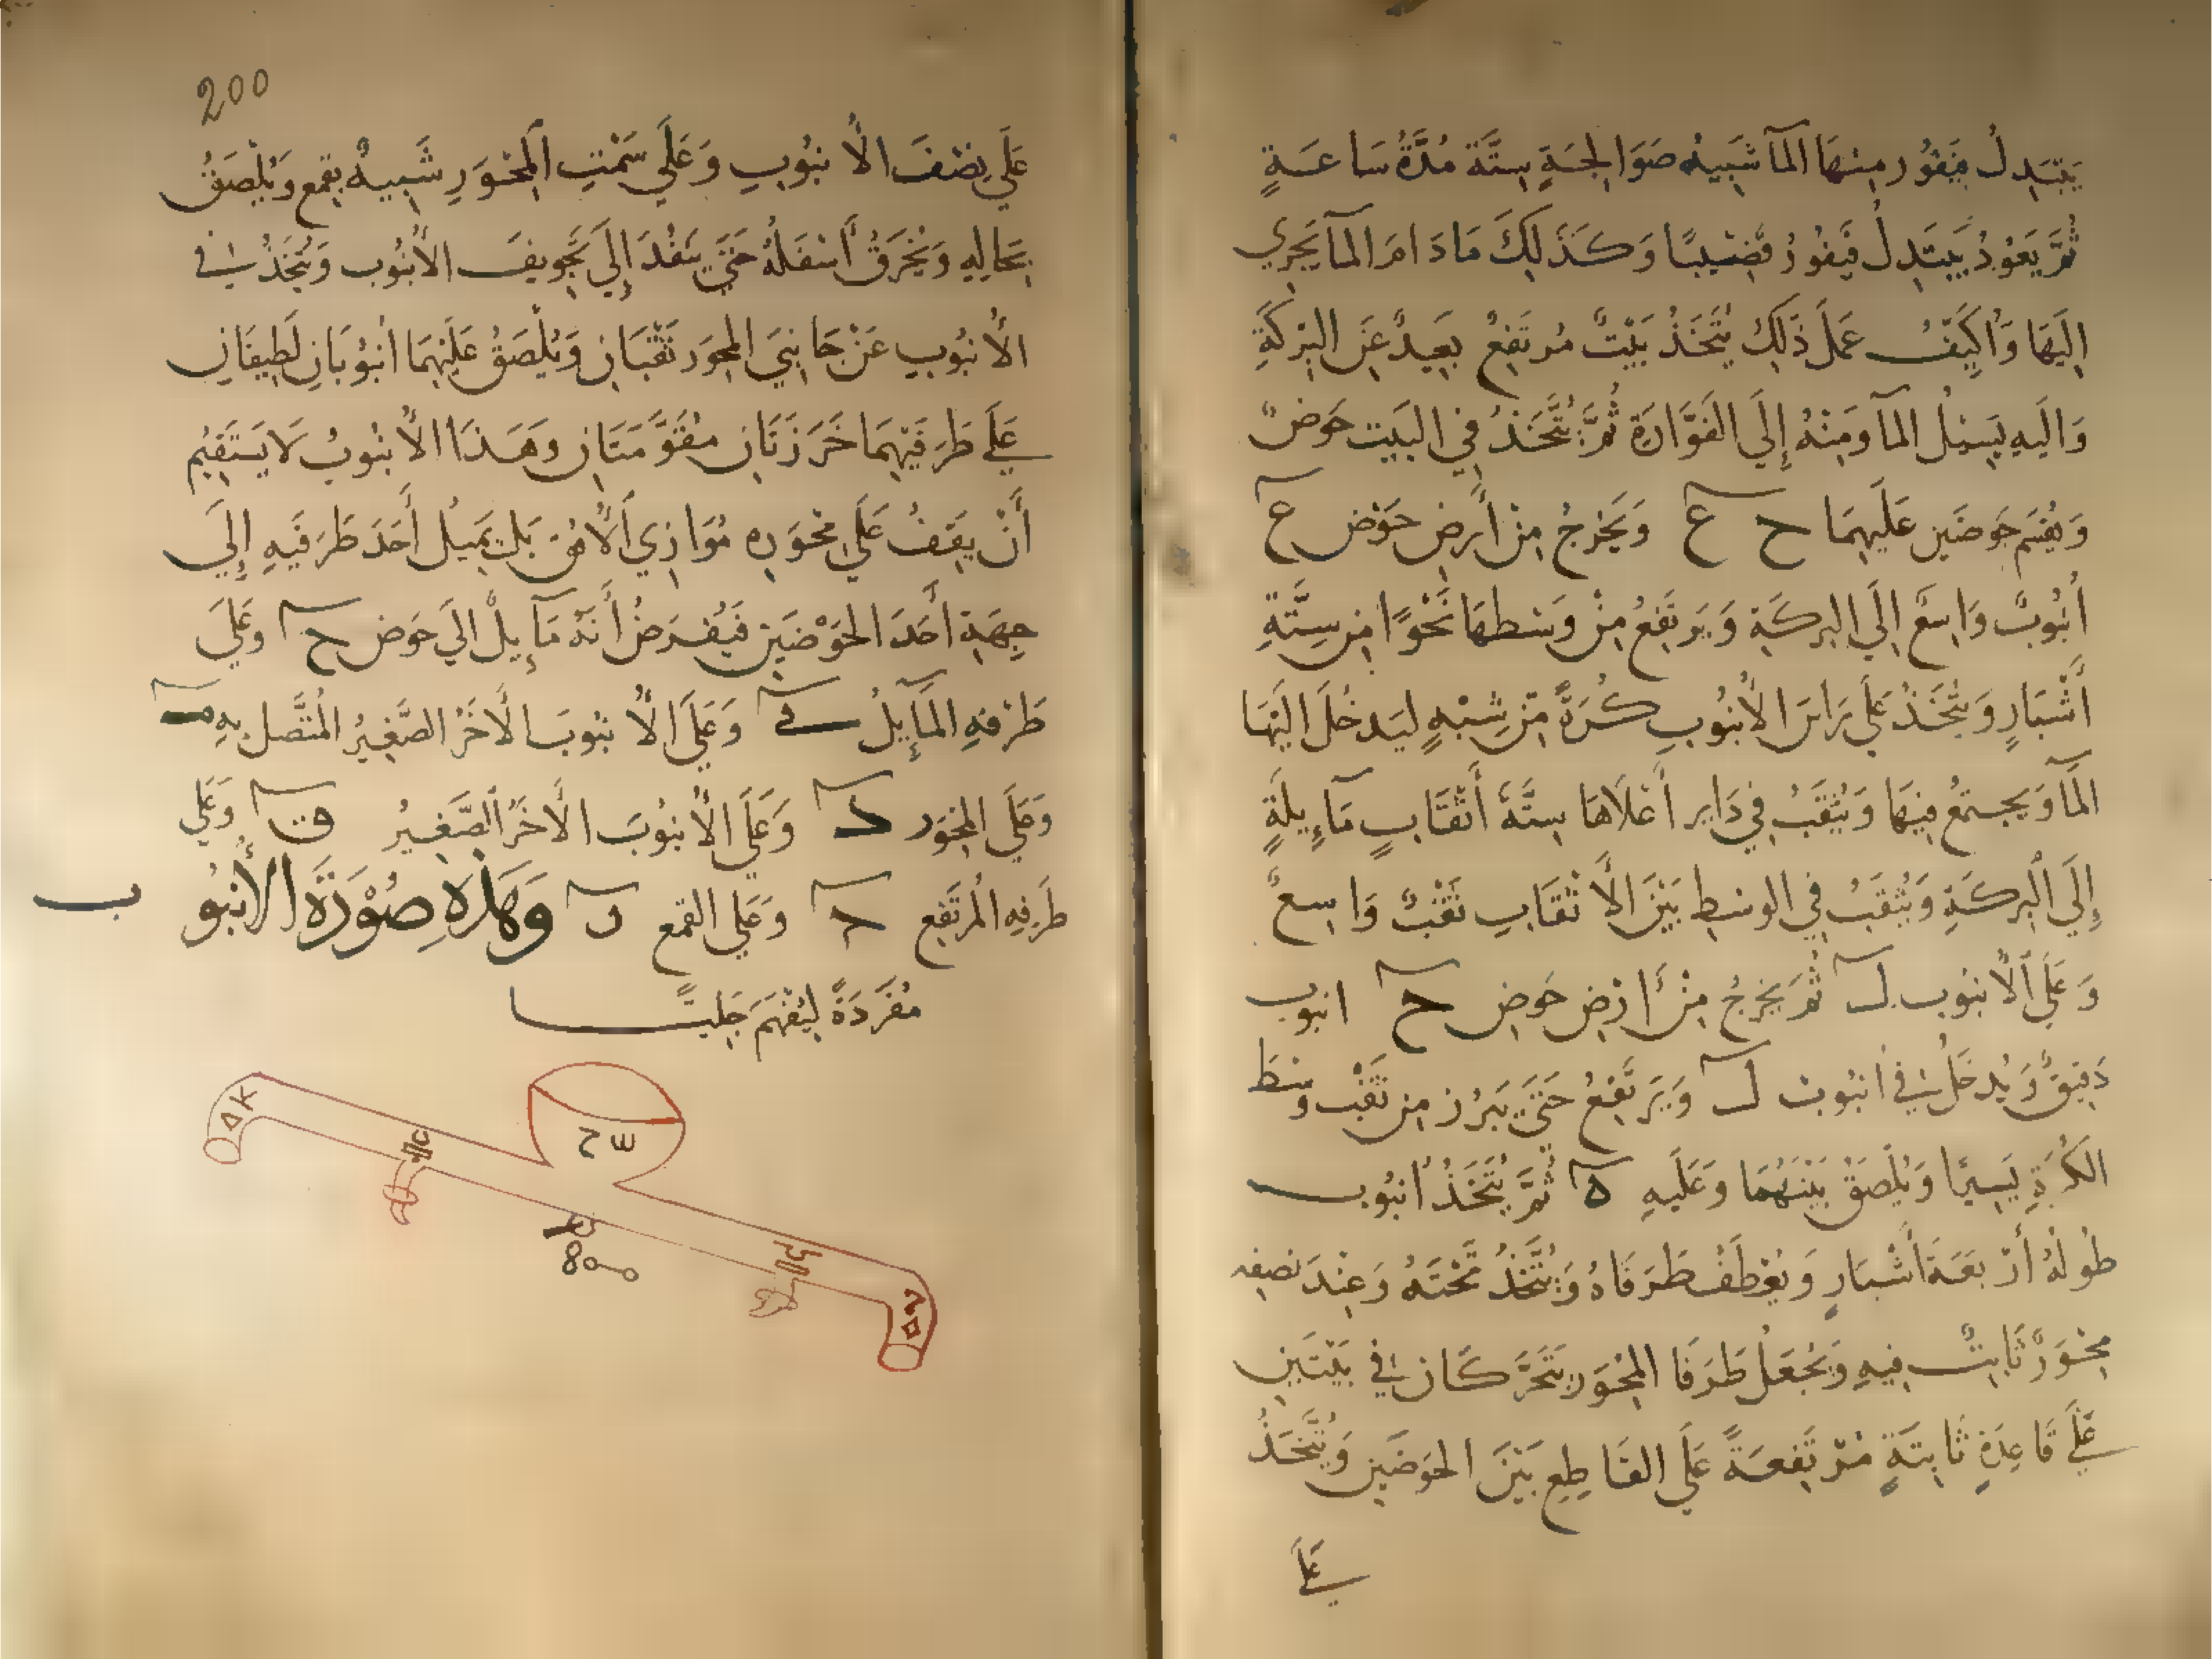 يَتَبَدِلُ فَيَفُورُ مِنهَا المآ شَبِيهُ صَوَالجِةٍ سِتَّة مُدَّةُ سَاعَةٍ
ثُمَّ يَعُودُ يَتَبَدِلُ فَيَفُورُ قَضِيبًا وَكَذَلِكَ مَادَامَ المآ يَجرِي
اِلَيهَا وَاُكَيِّفُ عَمَلَ ذَلِكَ يُتَّخَذُ بَيْتٌ مُرتَفِعٌ بَعِيدٌ عَنِ البِرْكَةِ
وَاِلَيهِ يَسِيلُ المآ وَمِنْهُ إِلَي الفَوَّارَة ثُمَّ يُتَّخَذُ فِي البَيت حَوضٌ
وَيُقْسَم حَوضَينِ عَلَيهِمَا ح ع وَيَخرجُ مِنْ أَرضِ حَوْض ع
أُنبُوبٌ وَاسِعٌ اِلَي البِركَةِ وَيَرتَفِعُ مِنْ وَسَطهَا نَحْوًا مِن سِتَّةِ
أَشْبَارٍ وَيُتَّخَذُ عَلَي رَاسِ الأُنبُوبِ كُرَةٌ مِّن شِبْهٍ لِيَدخُلَ اِلَيْهَا
المآ وَيَجتمعُ فِيهَا وَيُثقَبُ فِي دَاير أَعْلَاهَا سِتَّةُ أَثْقَابٍ مَآئِلَةٍ
إِلَي البِركَةِ وَيُثقَبُ فِي الوسَطِ بَيْنَ الأَثقَابِ ثَقْبٌ وَاسِعٌ
وَعَلَي الأُنبُوب ل ثُمَ يخرجُ مِنْ أَرْضِ حَوضِ ح انبُوب
دَقِيقٌ وَيُدخَلُ في أُنبُوبُ ل وَيَرتَفِعُ حَتَّي يَبْرُز مِن ثَقْب وسَطِ
الكُرَةِ يَسِيرًا وَيُلصَقُ بَيْنَهُمَا وَعَلَيهِ ه ثُمَّ يُتَّخَذُ اُنبُوب
طُولُهُ أَرْبَعَةَ أَشْبَارٍ وَيُعْطَفْ طَرَفَاهُ وَيُتَّخَذُ تَحْتَهُ وَعِنْدَ نصِفِه
مِحْوَرٌ ثَابِتٌ فِيهِ وَيُجْعَلُ طَرَفَا المِحْوَرِ يَتَحَرَّكَانِ في بَيْتَيْنِ
عَلَي قَاعِدَةٍ ثَابِتَةٍ مُرْتَفِعَةً عَلَي القَاطِعِ بَيْنَ الحَوضَينِ وَيُتَّخَذُ
عَلَي
200
عَلَي نِصْفَ الأُنبُوبِ وَعَلَي سَمْتِ المِحْوَرِ شَبِيهُ بِقِمع وَيُلْصَقُ
بِحَالِهِ وَيُخرَقُ أَسْفَلُهُ حَتَّي يَنفُذَ إِلَي تَجويفَ الأُنبُوب وَيُتَّخَذُ في
الأُنبُوبِ عَنْ جَانِبَيَ المِحوَر ثَقْبَانِ وَيُلْصَقُ عَلَيْهِمَا اُنبُوبَانِ لَطِيفَانِ
عَلَي طَرَفَيْهِمَا خَرَزَتَانِ مُقَوَّمَتَانِ وَهَذَا الأُنبُوبُ لَا يَستَقِيمُ
أَنْ يَقِفُ عَلَي مِحْوَرِه مُوَازِي الأُفُقِ بَل يَمِيلُ أَحَدَ طَرَفَيهِ إِلَي
جِهَةِ أَحَدَ الحَوْضَينِ فَيُفرَضُ أَنَّه مَآئِلٌ اِلَي حَوض ح وعَلَي
طَرَفِهِ المآئِلُ ف وَعَلَى الأُنبُوبَ الأَخَرُ الصَّغِيرُ المُتَّصل بِهِ
وَعَلَي المِحْوَر د وَعَلَي الأُنبُوبَ الأَخَرُ الصَّغِيرُ ق وَعَلَي
طَرَفِهِ المُرتَفِع وَعَلَي القمع وَهَذِهِ صُوْرَةَ الأُنبُوب
مُفْرَدَةً لِيُفْهَمَ جَلِيًّا